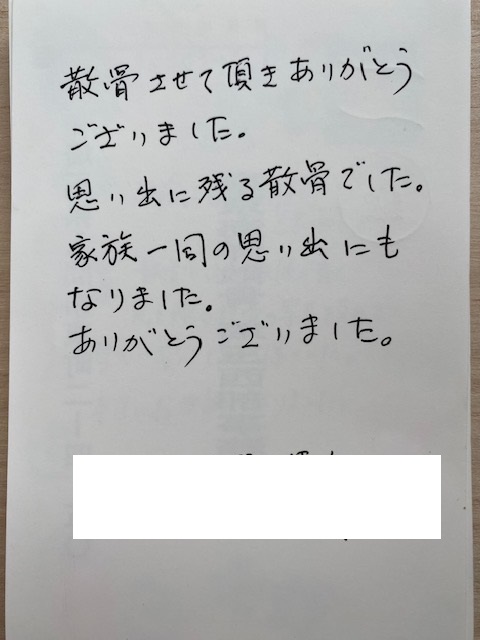 散骨させて頂きありがとう
ございました。
思い出に残る散骨でした。
家族一同の思い出にも
なりました。
ありがとうございました。